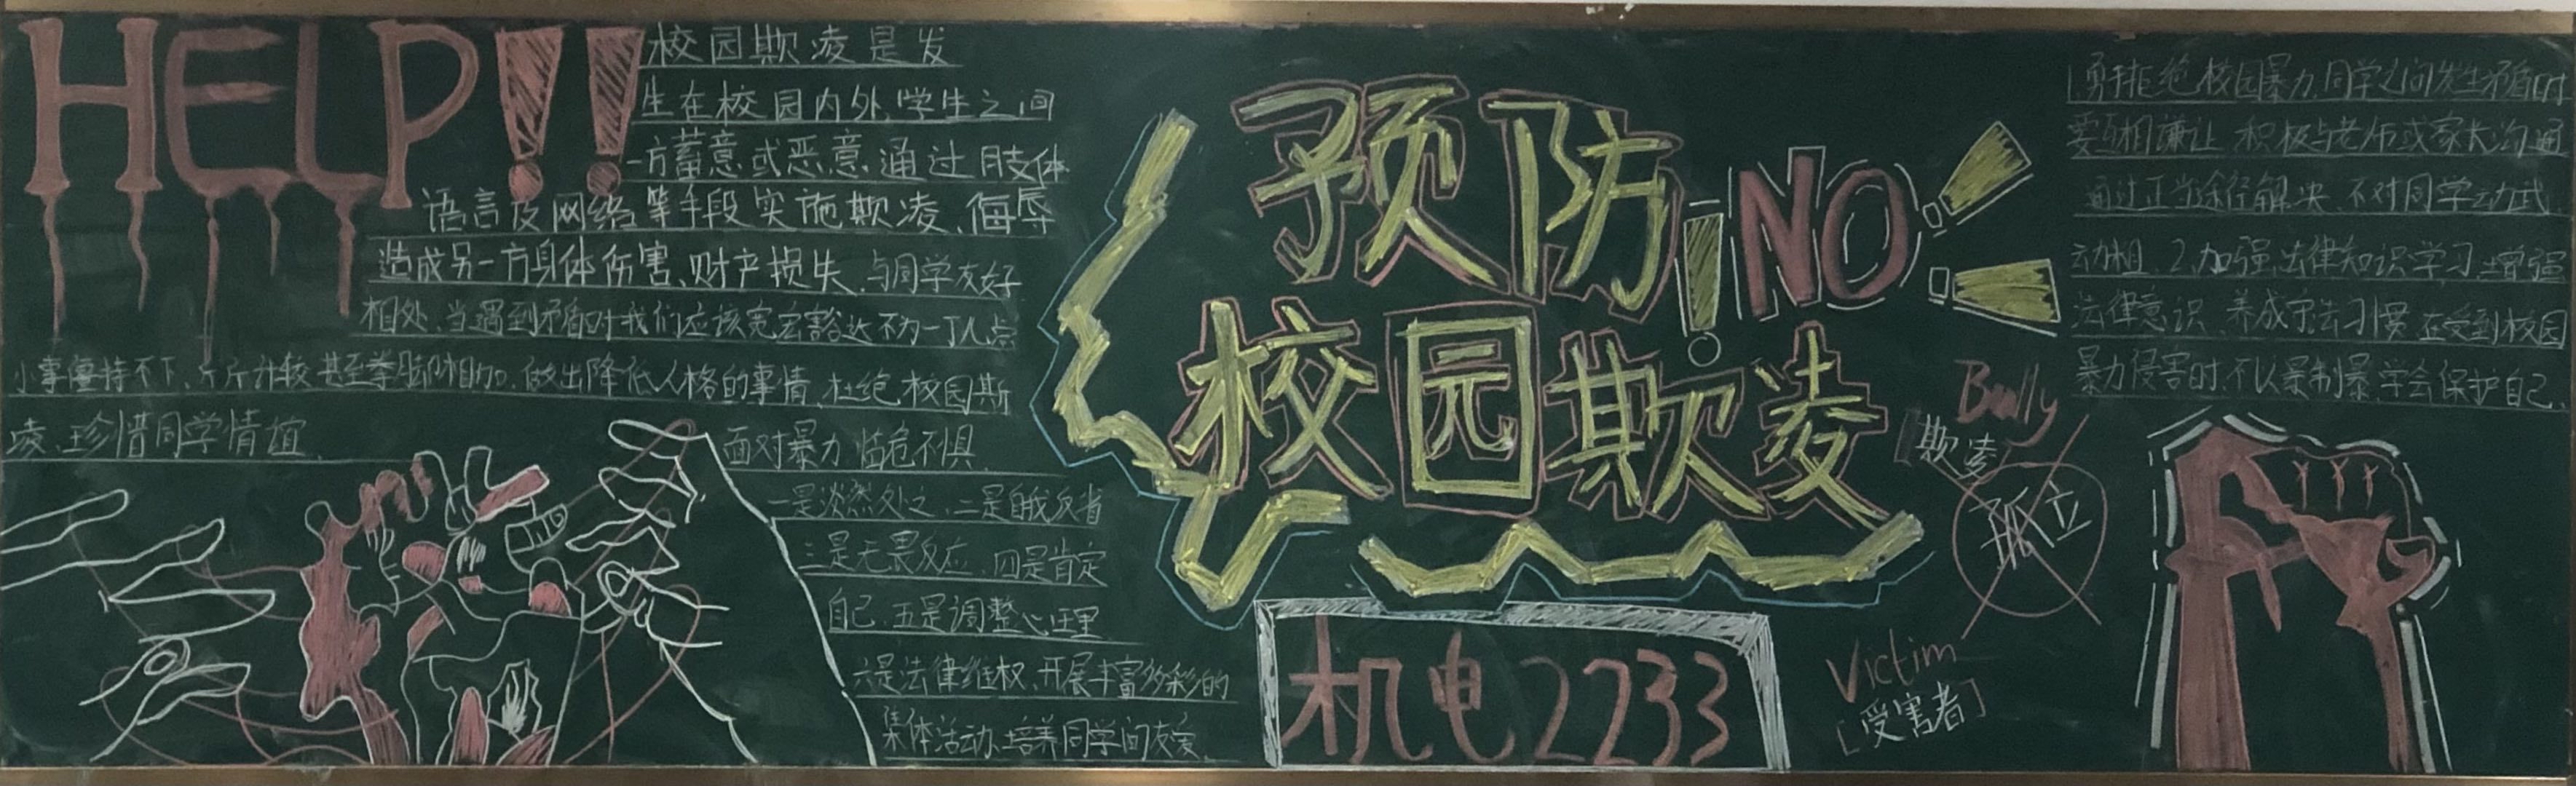 HELP!!
校园欺凌是发
生在校园内外,学生之间
一方蓄意或恶意通过肢体
语言及网络等手段实施欺凌、侮辱
造成另一方身体伤害、财产损失、与同学友好
相处、当遇到矛盾时我们应该宽宏豁达不为一丁儿点
小事僵持不下、斤斤计较甚至拳脚相加、做出降低人格的事情、杜绝校园斯
凌、珍惜同学情谊
面对暴力 临危不惧
一是淡然处之、二是自我反省
三是无畏反应、四是肯定
自己、五是调整心理
六是法律维权、开展丰富多彩的
集体活动、培养同学间友爱、
预防
!NO!!
校园欺凌
机电2233
Bully
[欺凌
孤立
Victim
[受害者]
1.勇于拒绝校园暴力,同学之间发生矛盾时
要互相谦让 积极与老师或家长沟通
通过正当途径解决、不对同学动武
动粗、2.加强法律知识学习、增强
法律意识、养成守法习惯 在受到校园
暴力侵害时、不以暴制暴、学会保护自己、